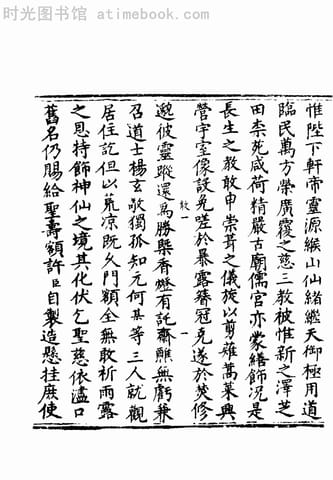 时光图书馆 - atimebook.com
惟陛下軒帝靈源緱山仙緒繼天御極用道
臨民萬方榮廣覆之慈三教被惟新之澤芝
田柰苑咸荷精嚴古廟儒宫亦蒙繕飾况是
長生之教敢申崇葺之儀旋以剪薙蒿萊興
營宇室像設免嗟於暴露蔡冠克遂於焚修
邈彼靈蹤還為勝槩香燈有託齋醮無虧兼
召道士楊玄敬獨孤知元何其等三人就觀
居住訖但以荒凉既久門額全無敢祈雨露
之恩持飾神仙之境其化伏乞聖慈依濜口
舊名仍賜給聖壽額許臣自製造懸挂庶使